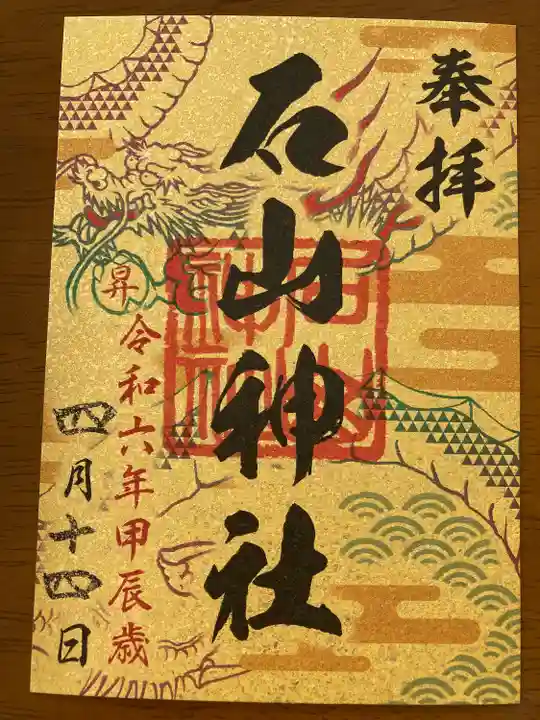 奉拝
石山神社
昇
令和六年甲辰歳
四月十四日